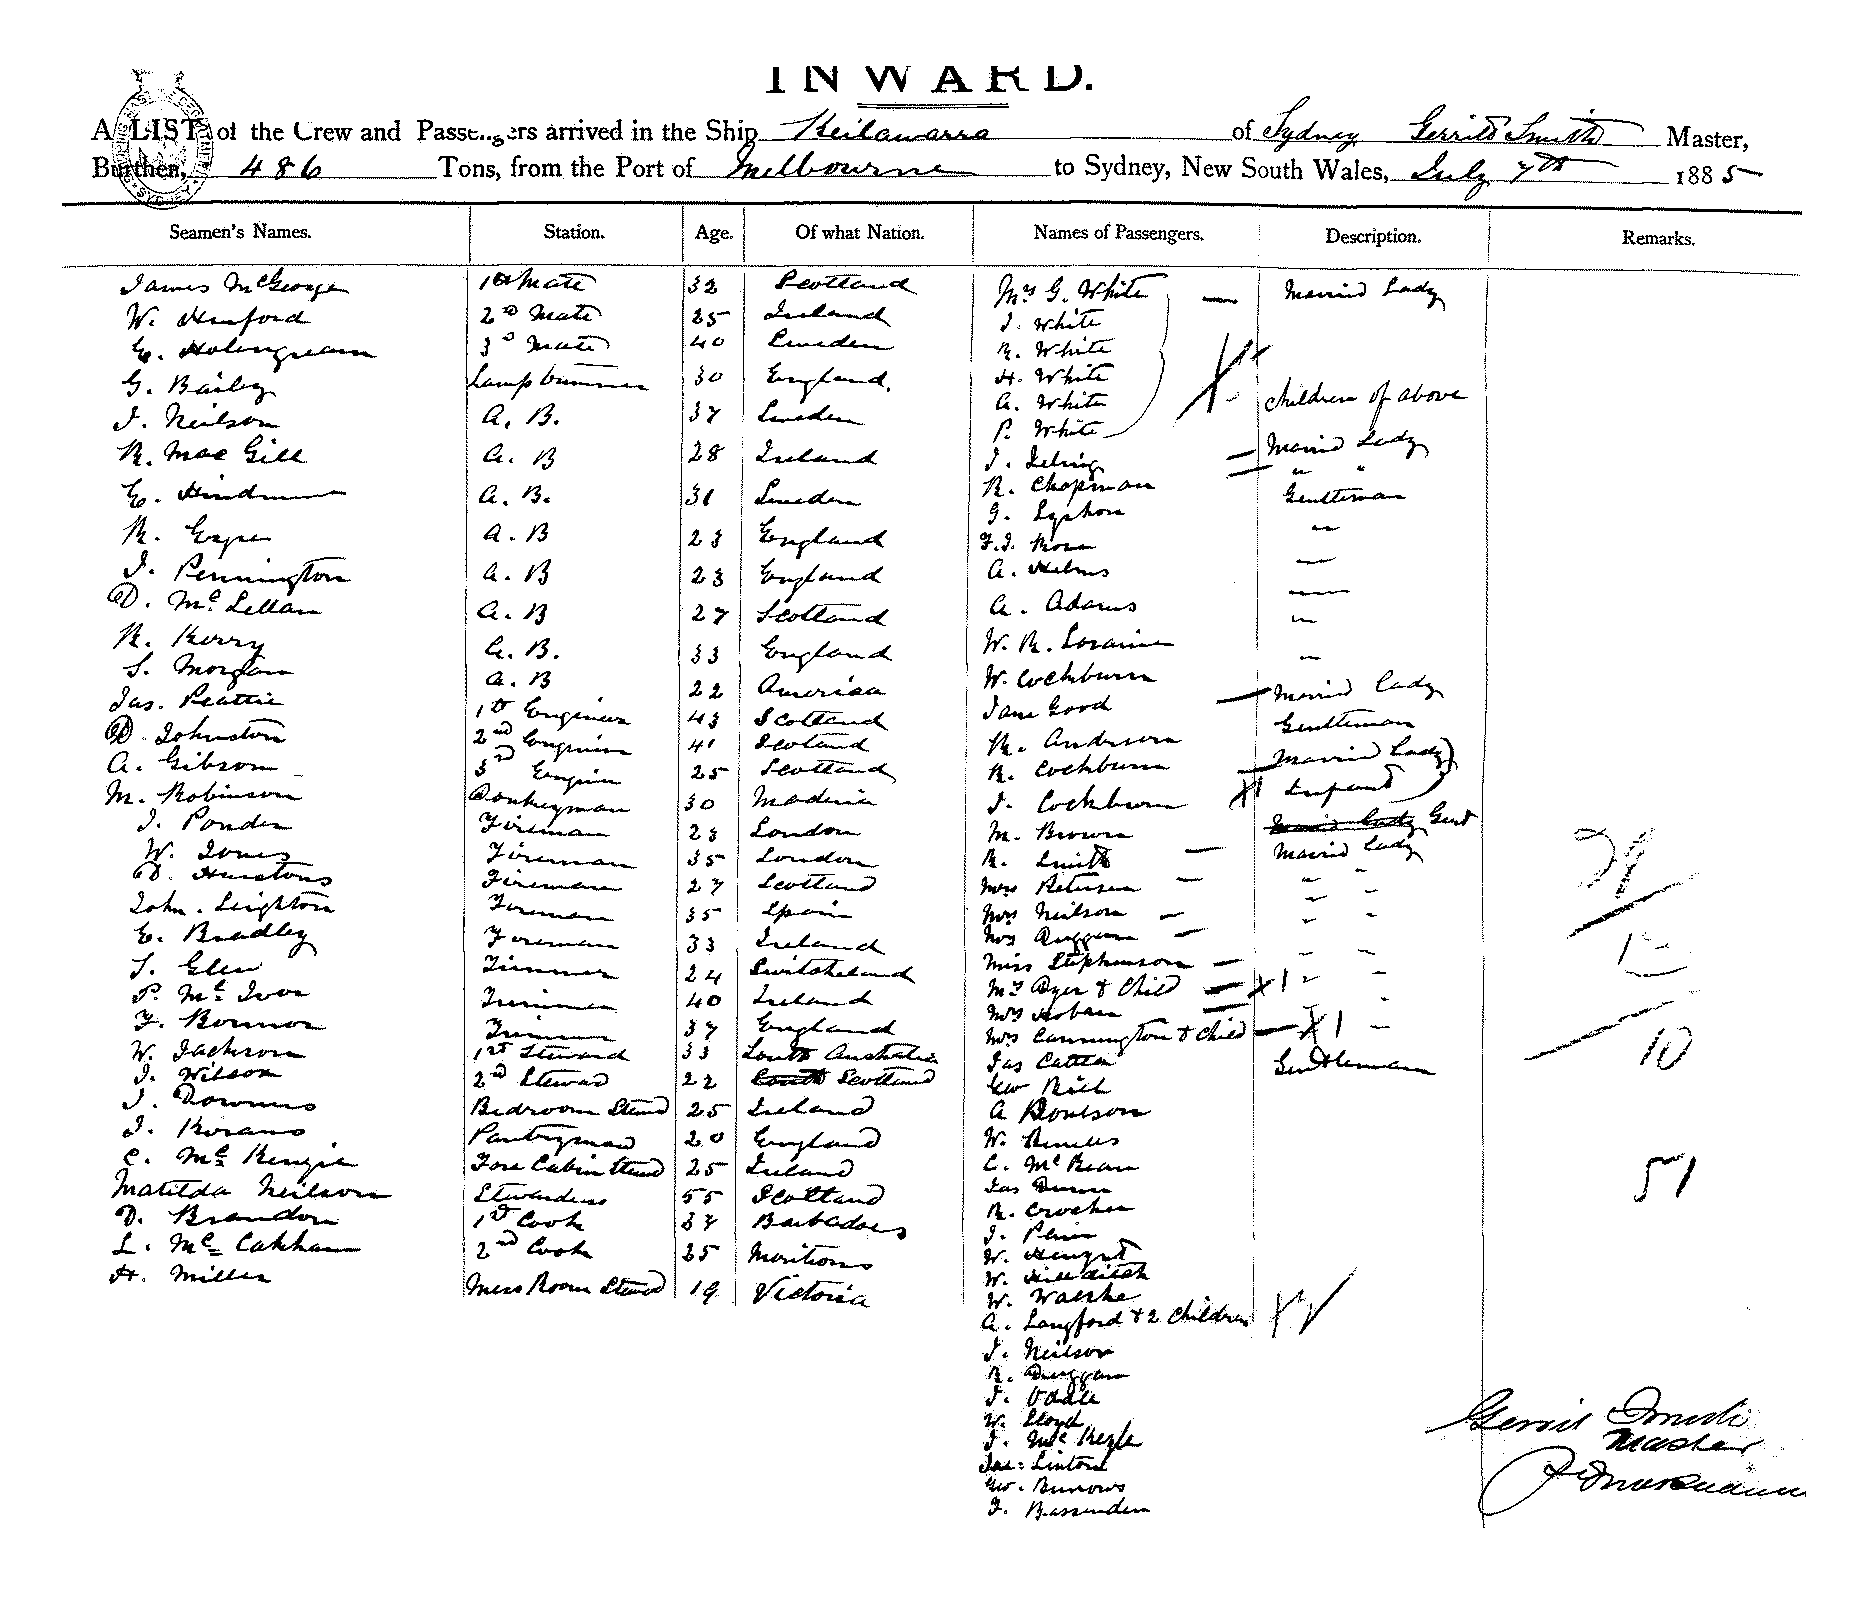 INWARD.
A LIST of the Crew and Passengers arrived in the Ship Keilawarra of Sydney Gerrits Smith Master,
Burthen, 486 Tons, from the Port of Melbourne to Sydney, New South Wales, July 7th 1885
Seamen's Names. Station. Age. Of what Nation. Names of Passengers. Description. Remarks.
James McGeorge 1st Mate 32 Scotland
W. Hinford 2nd Mate 25 Ireland
E. Holmgream 3d Mate 40 Sweden
G. Bailey Lamptrimmer 30 England.
J. Neilson A. B. 37 Sweden
R. Mac Gill A. B 28 Ireland
E. A. B. 31 Sweden
R. A. B 23 England
J. Pennington A. B 23 England
D. Mc Lellan A. B 27 Scotland
R. Kerry A. B. 33 England
S. Morgan A. B 22 America
Jas. Peattie 1st Engineer 43 Scotland
D. Johnston 2nd Engineer 41 Scotland
A. Gibson 3rd Engin 25 Scotland
M. Robinson Donkeyman 30 Madeira
J. Ponder Fireman 23 London
W. Jones Fireman 35 London
D. Hustons Fireman 27 Scotland
John. Leighton Fireman 35 Spain
E. Bradley Foreman 33 Ireland
S. Glen Trimmer 24 Switzerland
P. Mc Ivor Trimmer 40 Ireland
F. Bonnor Trimmer 37 England
W. Jackson 1st Steward 33 South Australia
J. Wilson 2nd Steward 22 South Scotland
J. Downes Bedroom Steward 25 Ireland
J. Korans Pantryman 20 England
C. Mc Kenzie Fore Cabin Steward 25 Ireland
Matilda Neilson Stewardess 55 Scotland
D. Brandon 1st Cook 37 Barbadoes
L. Mc Cakham 2nd Cook 25 Moritious
H. Miller Mess Room Steward 19 Victoria
Mrs G. White — Married Lady
J. White
R. White
H. White
A. White children of above
P. White
J. — Married Lady
R. Chapman — " "
G. Syphon Gentleman
F.J. Rose "
A. Helms —
A. Adams —
W. R. Loraine "
W. Cockburn "
Jane Good — Married Lady
R. Anderson Gentleman
R. Cockburn — Married Lady
J. Cockburn X1 Infant
M. Brown Married Lady Gent
R. Smith — Married Lady
Mrs Petersen — " "
Mrs Neilson — " "
Mrs Duggan — " "
Miss Stephenson — " "
Mrs Dyer & Child — X1 " "
Mrs Hoban — "
Mrs Cannington & Child — X1 "
Jas Catten Gentleman
Geo Bill
A Boulson
W.
C. McBean
Jas Dunn
R. Crocker
J. Plain
W. Hengst
W. Hilleditch
W. Waeske
A. Langford & 2 Children X2
J. Neilson
R. Duggan
J. Odale
W. Lloyd
J. Mc Kezle
Jas: Linton
Geo. Burrows
F. Bassenden
29
12
10
51
Gerrit Smith
Master